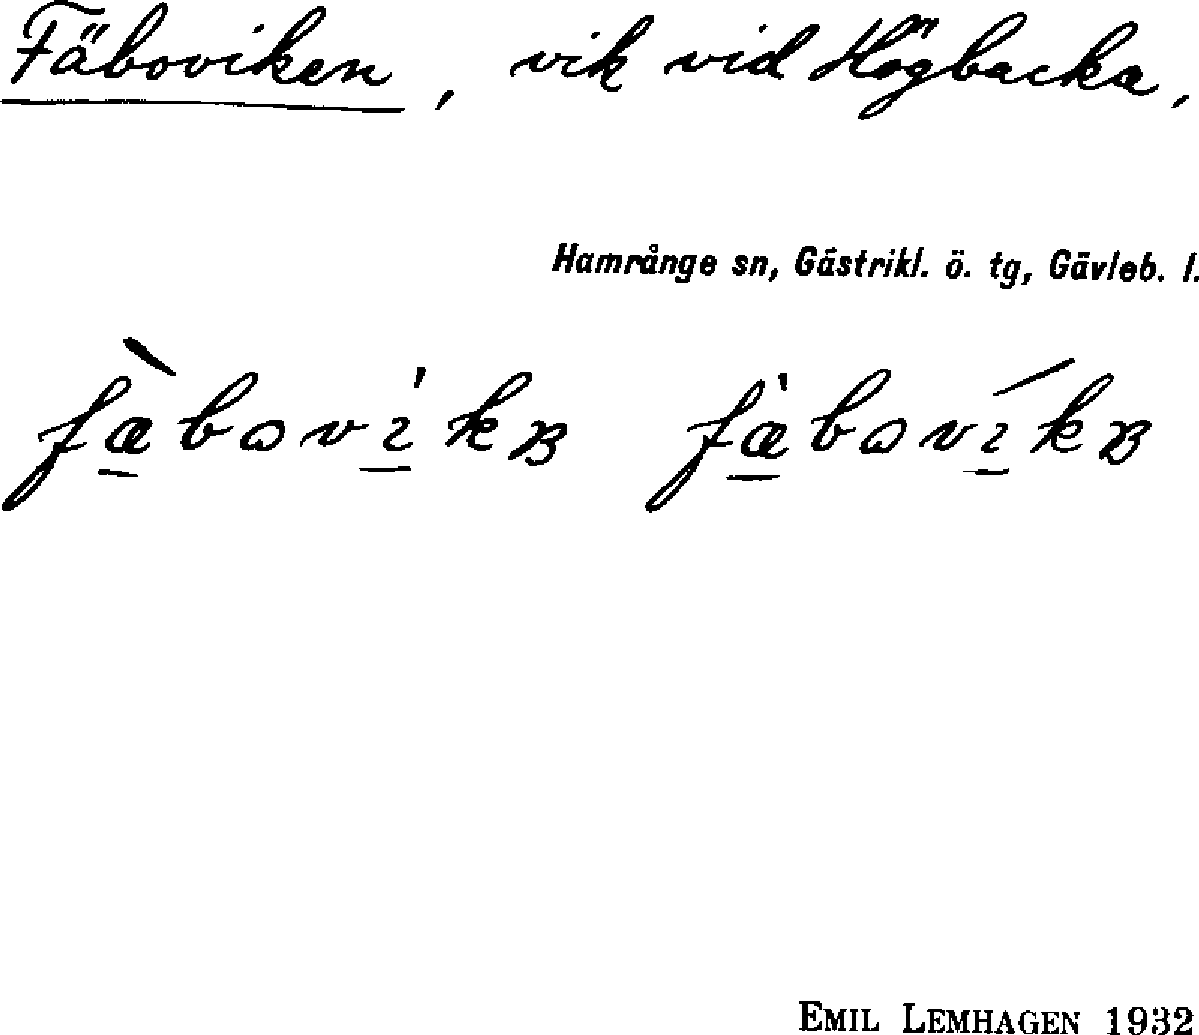 Fäboviken, vik vid Högbacka,
Hamrånge sn, Gästrikl. ö. tg, Gävleb. l.
fæ̀bovıkɴ fæ̀bovíkɴ
EMIL LEMHAGEN 1932